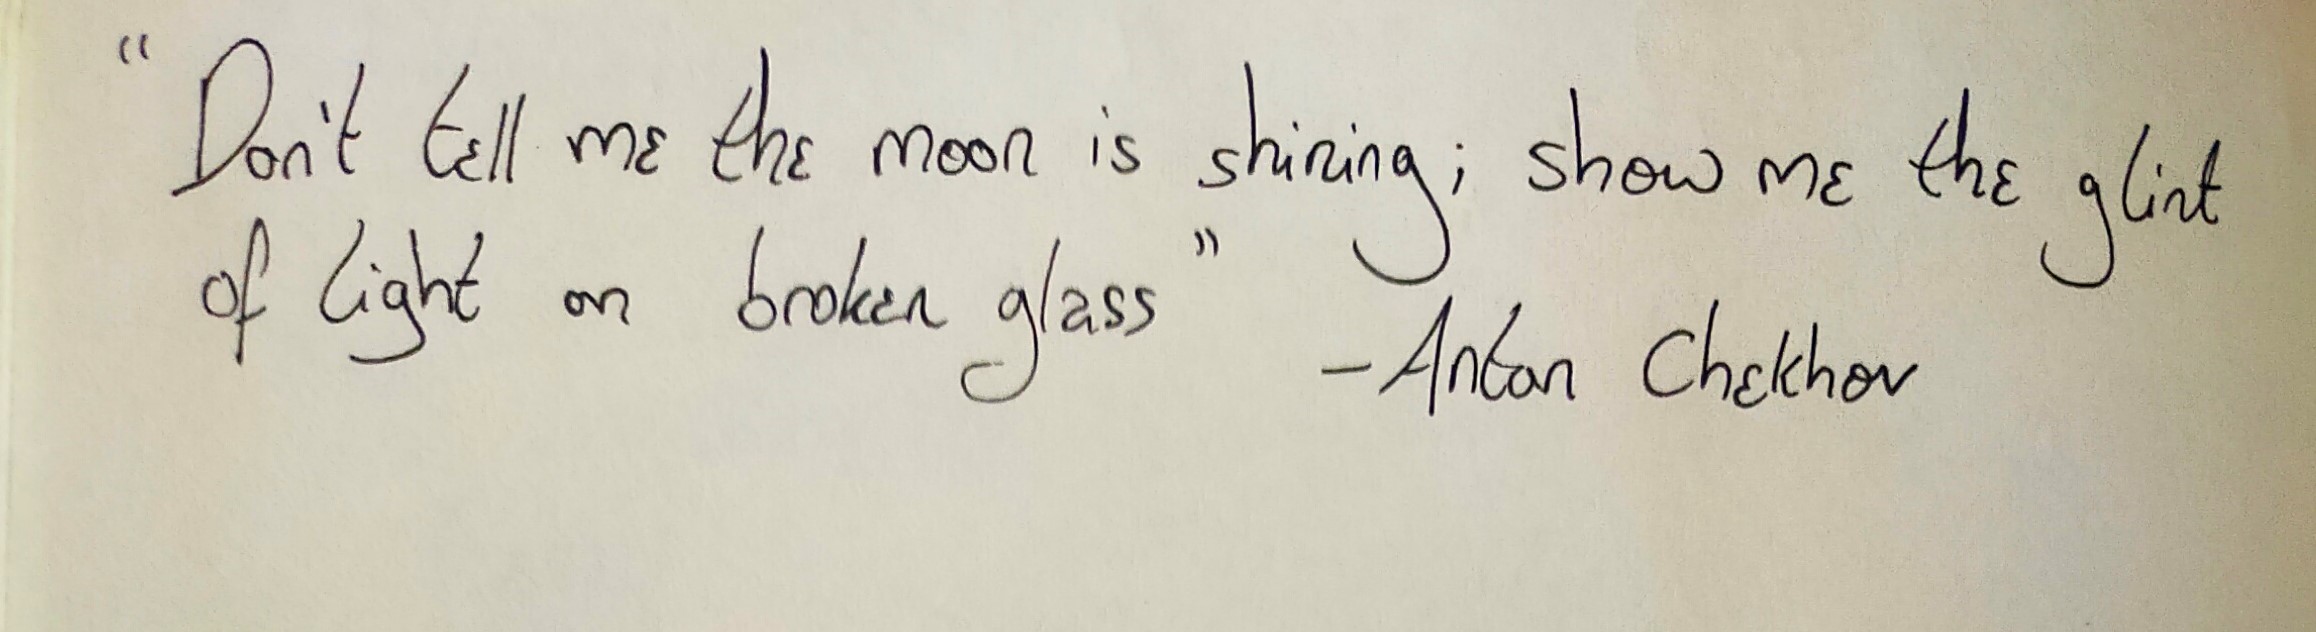 “Don't tell me the moon is shining; show me the glint
of light on broken glass”
-Anton Chekhov